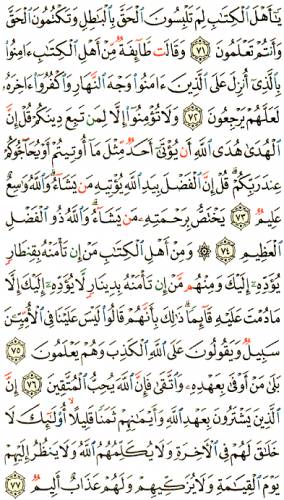 يَٰٓأَهۡلَ ٱلۡكِتَٰبِ لِمَ تَلۡبِسُونَ ٱلۡحَقَّ بِٱلۡبَٰطِلِ وَتَكۡتُمُونَ ٱلۡحَقَّ
وَأَنتُمۡ تَعۡلَمُونَ ٧١ وَقَالَت طَّآئِفَةٞ مِّنۡ أَهۡلِ ٱلۡكِتَٰبِ ءَامِنُواْ
بِٱلَّذِيٓ أُنزِلَ عَلَى ٱلَّذِينَ ءَامَنُواْ وَجۡهَ ٱلنَّهَارِ وَٱكۡفُرُوٓاْ ءَاخِرَهُۥ
لَعَلَّهُمۡ يَرۡجِعُونَ ٧٢ وَلَا تُؤۡمِنُوٓاْ إِلَّا لِمَن تَبِعَ دِينَكُمۡ قُلۡ إِنَّ
ٱلۡهُدَىٰ هُدَى ٱللَّهِ أَن يُؤۡتَىٰٓ أَحَدٞ مِّثۡلَ مَآ أُوتِيتُمۡ أَوۡ يُحَآجُّوكُمۡ
عِندَ رَبِّكُمۡۗ قُلۡ إِنَّ ٱلۡفَضۡلَ بِيَدِ ٱللَّهِ يُؤۡتِيهِ مَن يَشَآءُۗ وَٱللَّهُ وَٰسِعٌ
عَلِيمٞ ٧٣ يَخۡتَصُّ بِرَحۡمَتِهِۦ مَن يَشَآءُۗ وَٱللَّهُ ذُو ٱلۡفَضۡلِ
ٱلۡعَظِيمِ ٧٤ ۞ وَمِنۡ أَهۡلِ ٱلۡكِتَٰبِ مَنۡ إِن تَأۡمَنۡهُ بِقِنطَارٖ
يُؤَدِّهِۦٓ إِلَيۡكَ وَمِنۡهُم مَّنۡ إِن تَأۡمَنۡهُ بِدِينَارٖ لَّا يُؤَدِّهِۦٓ إِلَيۡكَ إِلَّا
مَا دُمۡتَ عَلَيۡهِ قَآئِمٗاۗ ذَٰلِكَ بِأَنَّهُمۡ قَالُواْ لَيۡسَ عَلَيۡنَا فِي ٱلۡأُمِّيِّـۧنَ
سَبِيلٞ وَيَقُولُونَ عَلَى ٱللَّهِ ٱلۡكَذِبَ وَهُمۡ يَعۡلَمُونَ ٧٥
بَلَىٰ مَنۡ أَوۡفَىٰ بِعَهۡدِهِۦ وَٱتَّقَىٰ فَإِنَّ ٱللَّهَ يُحِبُّ ٱلۡمُتَّقِينَ ٧٦ إِنَّ
ٱلَّذِينَ يَشۡتَرُونَ بِعَهۡدِ ٱللَّهِ وَأَيۡمَٰنِهِمۡ ثَمَنٗا قَلِيلًا أُوْلَٰٓئِكَ لَا
خَلَٰقَ لَهُمۡ فِي ٱلۡأٓخِرَةِ وَلَا يُكَلِّمُهُمُ ٱللَّهُ وَلَا يَنظُرُ إِلَيۡهِمۡ
يَوۡمَ ٱلۡقِيَٰمَةِ وَلَا يُزَكِّيهِمۡ وَلَهُمۡ عَذَابٌ أَلِيمٞ ٧٧